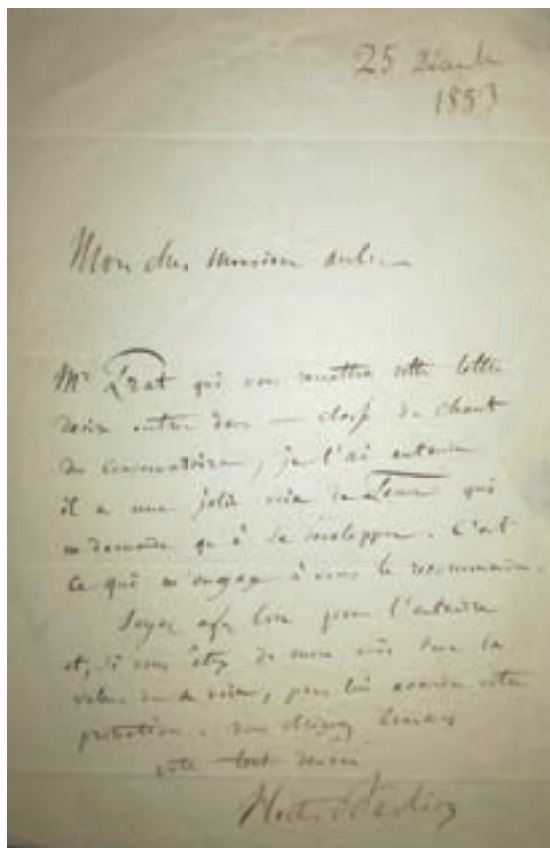 25 Décembre
1853
Mon cher Monsieur Auber
Mr Prat qui vous remettra cette lettre
désire entrer dans une classe de chant
du Conservatoire, je l'ai entendu
il a une jolie voix de Ténor qui
ne demande qu'à se développer. C'est
ce qui m'engage à vous le recommander.
Soyez assez bon pour l'entendre
et, si vous êtes de mon avis sur la
valeur de sa voix, pour lui accorder votre
protection.
votre tout dévoué
Hector Berlioz